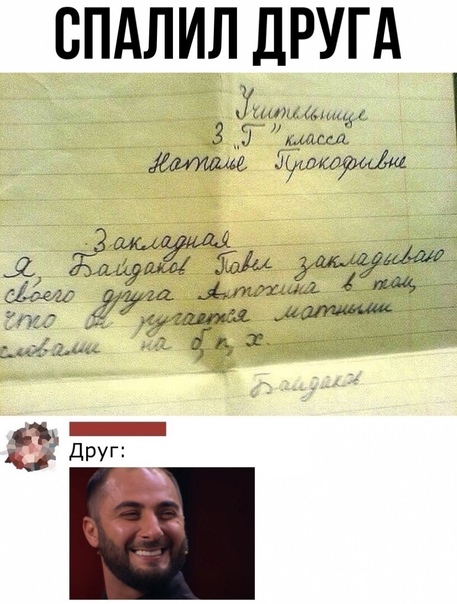 СПАЛИЛ ДРУГА
Учительнице
3 „Г" класса
Наталье Прокофивне
Закладная
Я, Байдаков Павел закладываю
своего друга Антохина в том,
что он ругается матными
словами на б, п, х.
Байдаков
Друг: